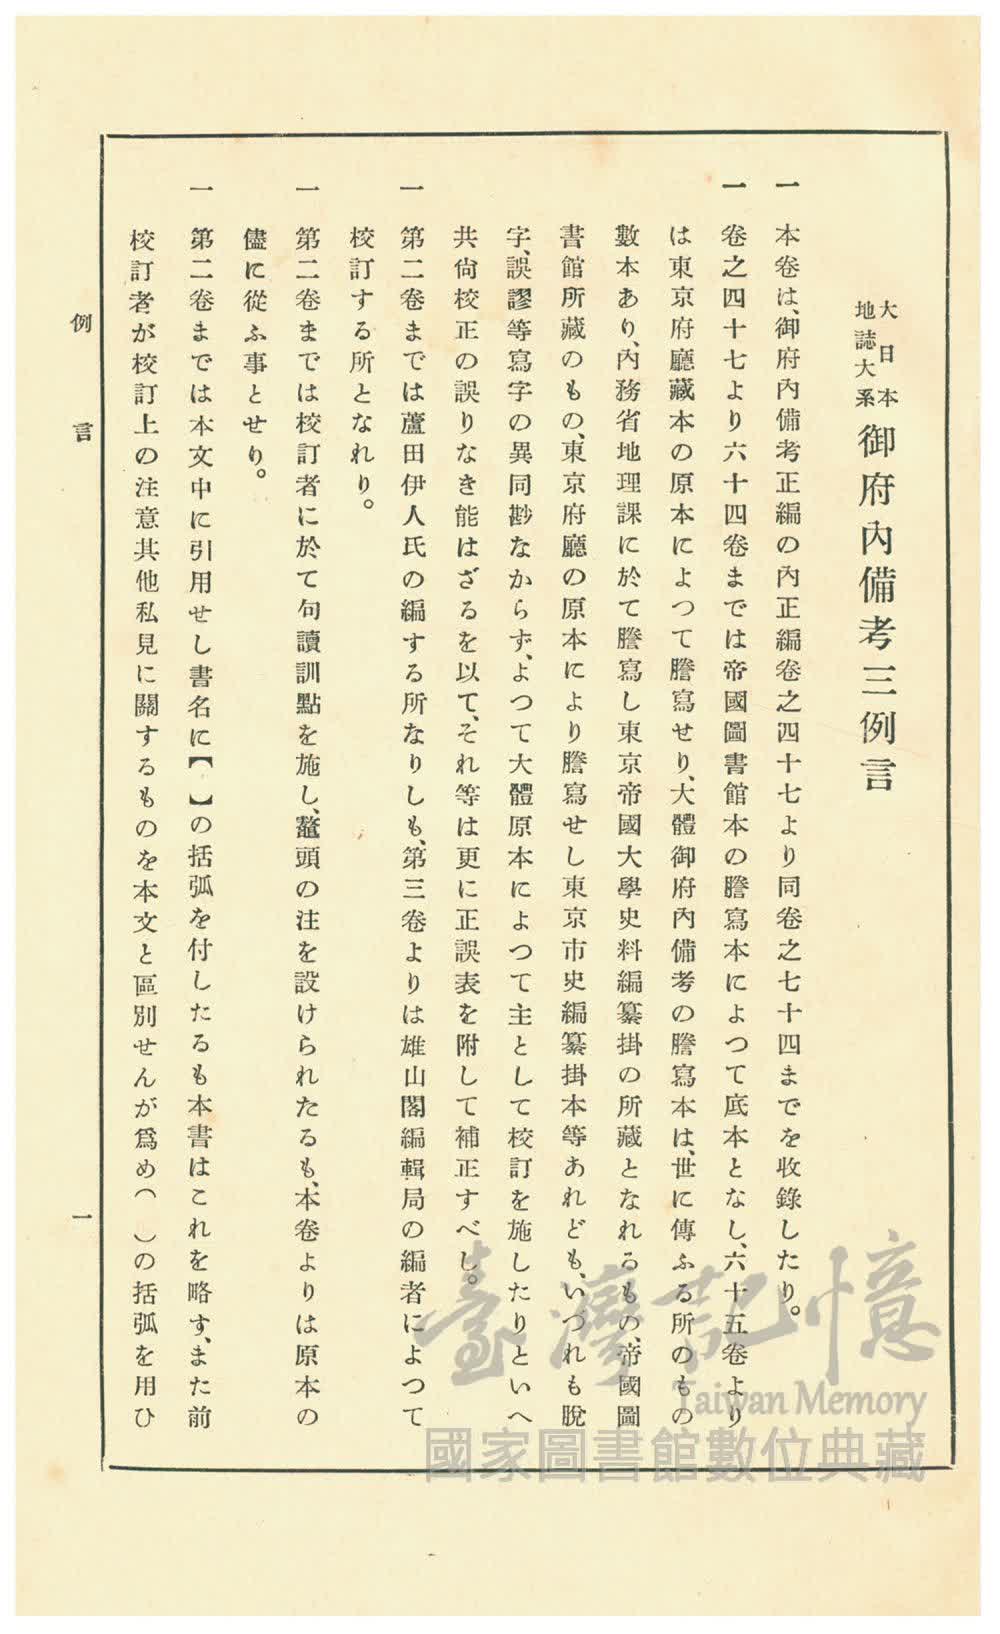 大日本
地誌大系
御府內備考三例言
一 本卷は、御府內備考正編の內正編卷之四十七より同卷之七十四までを收錄したり。
一 卷之四十七より六十四卷までは帝國圖書館本の謄寫本によつて底本となし、六十五卷より
は東京府廳藏本の原本によつて謄寫せり、大體御府內備考の謄寫本は、世に傳ふる所のもの
數本あり、內務省地理課に於て謄寫し東京帝國大學史料編纂掛の所藏となれるもの、帝國圖
書館所藏のもの、東京府廳の原本により謄寫せし東京市史編纂掛本等あれども、いづれも脫
字、誤謬等寫字の異同尠なからず、よつて大體原本によつて主として校訂を施したりといへ
共尙校正の誤りなき能はざるを以て、それ等は更に正誤表を附して補正すべし。
一 第二卷までは蘆田伊人氏の編する所なりしも、第三卷よりは雄山閣編輯局の編者によつて
校訂する所となれり。
一 第二卷までは校訂者に於て句讀訓點を施し、鼇頭の注を設けられたるも、本卷よりは原本の
儘に從ふ事とせり。
一 第二卷までは本文中に引用せし書名に【 】の括弧を付したるも本書はこれを略す、また前
校訂者が校訂上の注意其他私見に關するものを本文と區別せんが爲め( )の括弧を用ひ
例言
一
臺灣記憶
Taiwan Memory
國家圖書館數位典藏